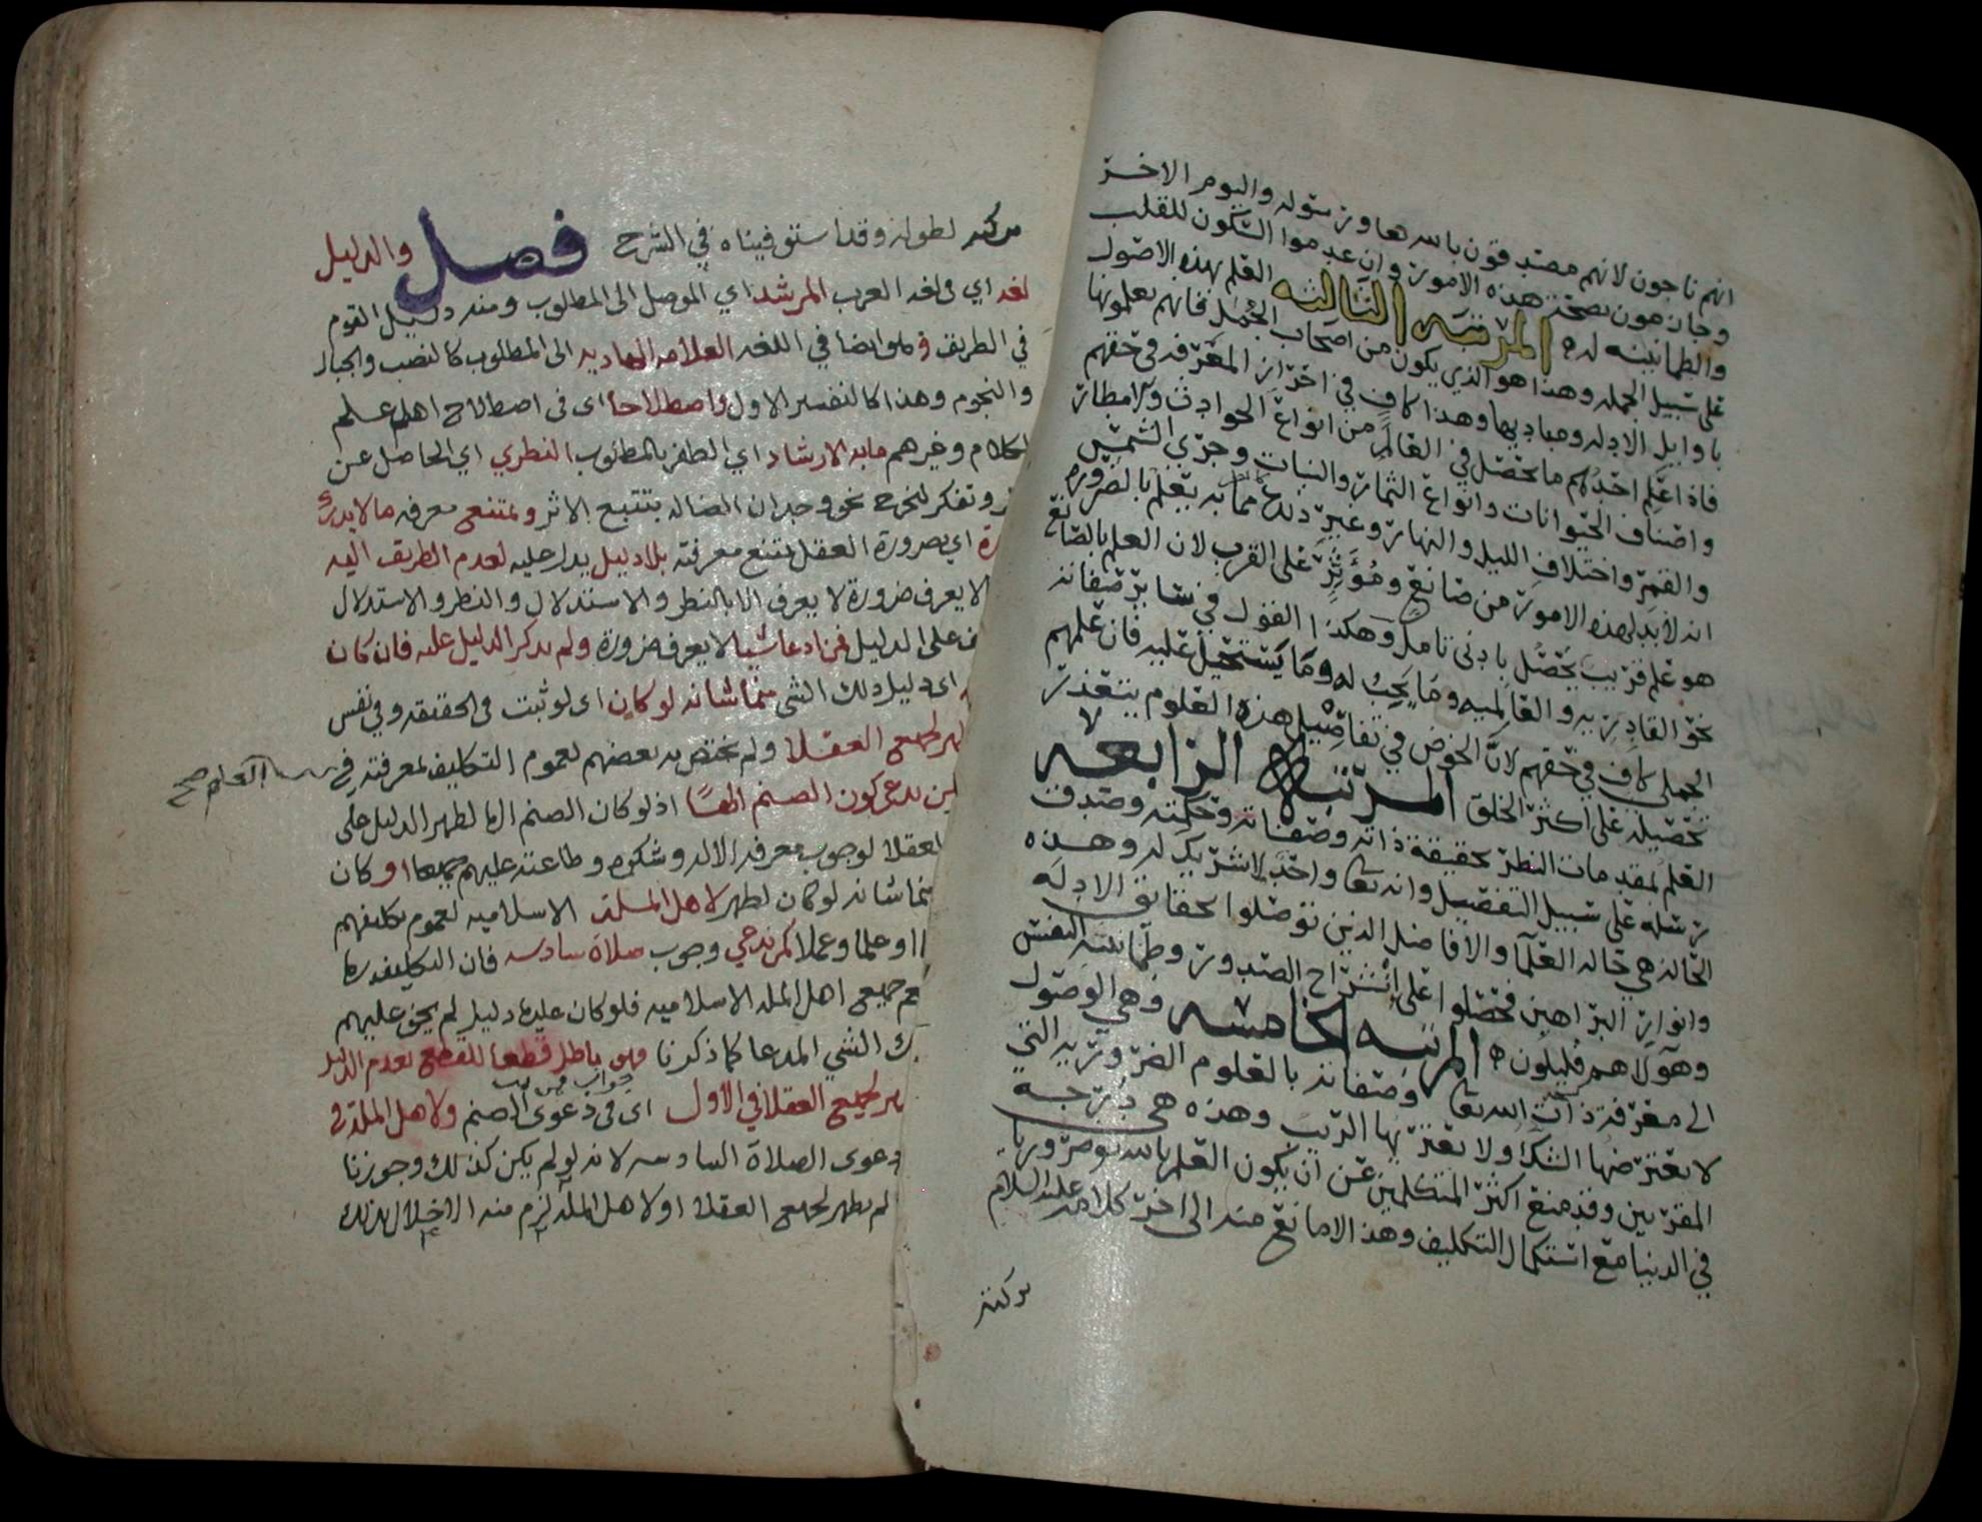 انهم ناجون لانهم مصدقون بالله تعا ورسوله واليوم الاخر
وجازمون بصحة هذه الامور وان عدموا السكون للقلب
والطمانينه له ه المرتبه الثالثه العلم بهذه الاصول
على سبيل الجمله وهذا هو الذي يكون من اصحاب الجمل فانهم يعلمونها
باوايل الادله ومباديها وهذا كاف في احراز المعرفه في حقهم
فاذا علم احدهم ما يحصل في العالم من انواع الحوادث والامطار
واصناف الحيوانات وانواع الثمار والنبات وجري الشمس
والقمر واختلاف الليل والنهار وغير ذلك مما به يعلم بالضرورة
انه لابد لهذه الامور من صانع ومؤثر على القرب لان العلم بالصانع
هو علم قريب يحصل بادنى تامل وهكذا القول في ساير صفاته
نحو القادريه والعالميه وما يجب له وما يستحيل عليه فان علمهم
الجملي كاف في حقهم لان الخوض في تفاصيل هذه العلوم يتعذر
تحصيله على اكثر الخلق المرتبة الرابعه
العلم بمقدمات النظر بحقيقة ذاته وصفاته وحكمته وصدق
رسله على سبيل التفصيل وانه تعا واحد لا شريك له وهذه
الحاله هي حاله العلما والافاضل الذين توصلوا بحقايق الادله
وانوار البراهين فحصلوا على انشراح الصدور وطمانينه النفس
وهؤلا هم قليلون ه المرتبه الخامسه وهي الوصول
الى معرفة ذات الله تعا وصفاته بالعلوم الضروريه التي
لا يعتريها الشك ولا يعتريها الريب وهذه هي درجه
المقربين وقد منع اكثر المتكلمين عن ان يكون العلم بالله ضروريا
في الدنيا مع استكمال التكليف وهذا لا مانع منه الى اخر كلامه عليه السلام
تركته
تركته لطوله وقد استوفيناه في الشرح فصل والدليل
لغه اي في لغه العرب المرشد اي الموصل الى المطلوب ومنه دليل القوم
في الطريق وهو ايضا في اللغه العلامه الهاديه الى المطلوب كالنصب والجبال
والنجوم وهذا كالتفسير الاول واصطلاحا اى فى اصطلاح اهل علم
الكلام وغيرهم ما به الارشاد اي الظفر بالمطلوب النظري اي الحاصل عن
وتفكر ليخرج نحو وجدان الضاله بتتبع الاثر ويمتنع معرفه ما لا يدرك
اي بضرورة العقل يمتنع معرفته بلا دليل يدل عليه لعدم الطريق اليه
لا يعرف ضرورة لا يعرف الا بالنظر والاستدلال والنظر والاستدلال
على الدليل فمن ادعا شيا لا يعرف ضرورة ولم يذكر الدليل عليه فان كان
اى دليل ذلك الشي مما شانه لو كان اى لو ثبت فى الحقيقه وفي نفس
لجميع العقلا ولم يختص به بعضهم لعموم التكليف بمعرفته في
العلم صح
كمن يدعي كون الصنم الهًا اذ لو كان الصنم الها لظهر الدليل على
العقلا لوجوب معرفه الاله وشكره وطاعته عليهم جميعا او كان
مما شانه لو كان لظهر لاهل المله الاسلاميه لعموم تكليفهم
او علما وعملا كمن يدعي وجوب صلاة سادسه فان التكليف بها
جميع اهل المله الاسلاميه فلو كان عليها دليل لم يخف عليهم
الشي المدعا كما ذكرنا فهو باطل قطعا للقطع بعدم الدليل
لجميع العقلا في الاول اى فى دعوى الصنم ولاهل المله في
دعوى الصلاة السادسه لانه لو لم يكن كذلك وجوزنا
لم يظهر لجميع العقلا او لاهل المله لزم منه الاخلال بذلك